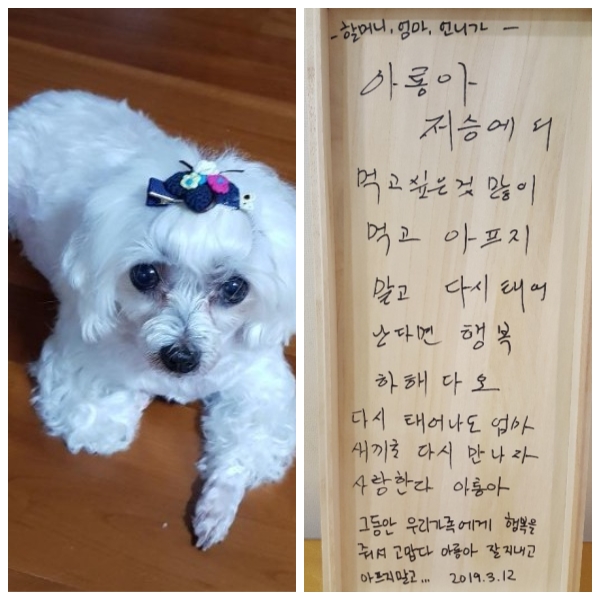 - 할머니, 엄마, 언니가 -
아롱아
저승에 서
먹고싶은것 많이
먹고 아프지
말고 다시 태어
난다면 행복
하해다오
다시 태어나도 엄마
새끼로 다시 만나자
사랑한다 아롱아
그동안 우리가족에게 행복을
줘서 고맙다 아롱아 잘지내고
아프지말고... 2019.3.12